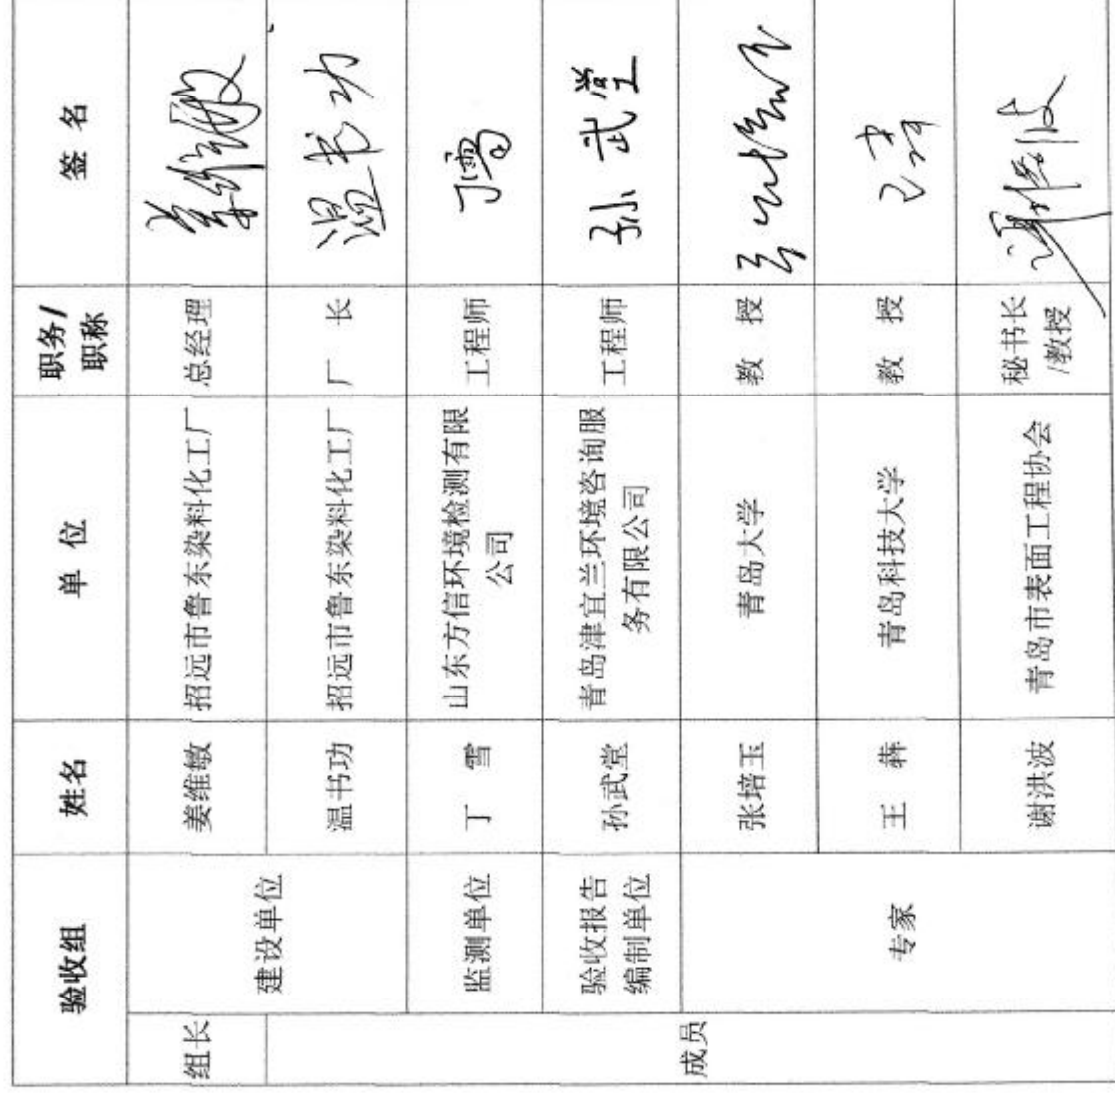 验收组 姓名 单 位 职务/职称 签 名
组长 建设单位 姜维敏 招远市鲁东染料化工厂 总经理 姜维敏
成员 温书功 招远市鲁东染料化工厂 厂 长 温书功
监测单位 丁 雪 山东方信环境检测有限公司 工程师 丁雪
验收报告编制单位 孙武堂 青岛津宜兰环境咨询服务有限公司 工程师 孙武堂
专家 张培玉 青岛大学 教 授 张培玉
王 犇 青岛科技大学 教 授
谢洪波 青岛市表面工程协会 秘书长/教授